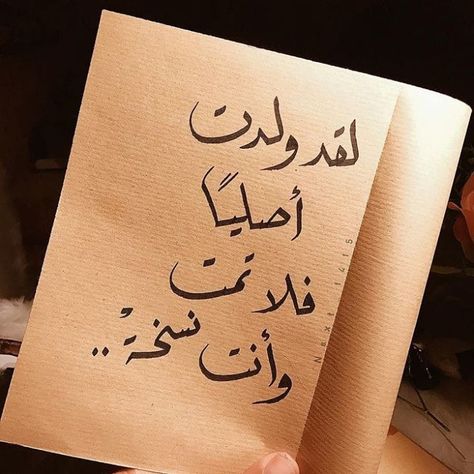 لقد ولدت
أصليًا
فلا تمت
وأنت نسخةْ ..